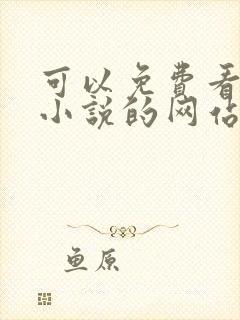 可以免费看
小说的网站
鱼原